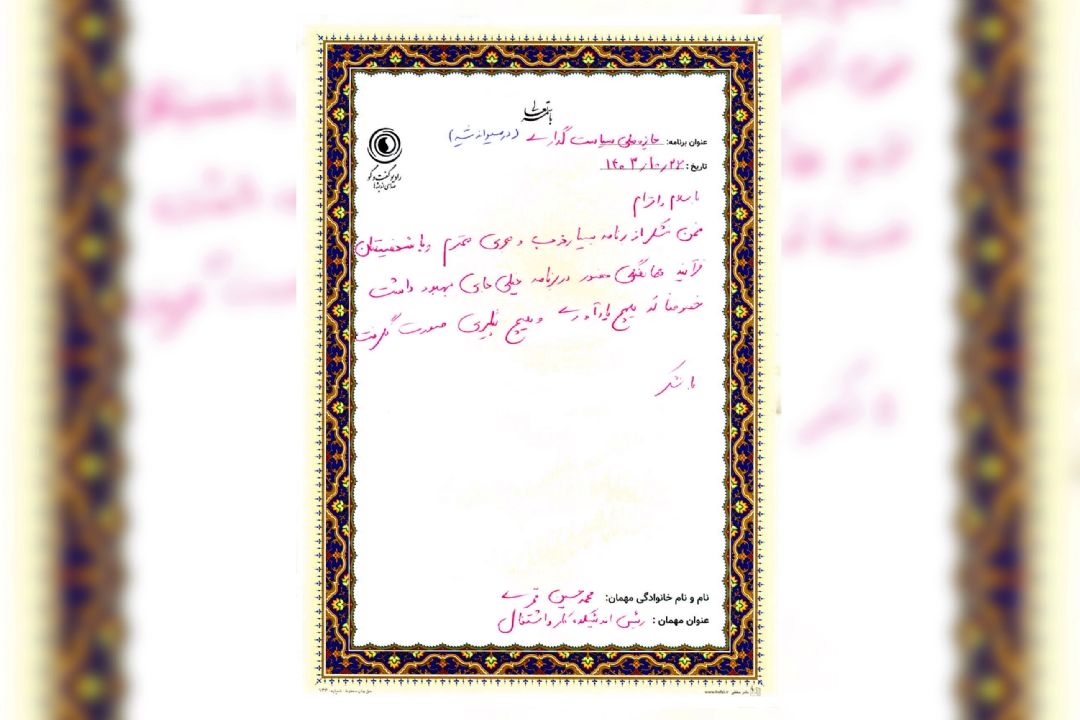 باسمه تعالی
عنوان برنامه: سیاست گذاری (در مسیر اندیشه)
تاریخ: ۱۴۰۳/۱۰/۲۶
رادیو گفت و گو
با سلام و احترام
ضمن تشکر از برنامه بسیار خوب و مجری محترم و با شخصیتتان
فرآیند هماهنگی حضور در برنامه خیلی جای بهبود داشت
خصوصا که هیچ یادآوری و هیچ پیگیری صورت نگرفت
با تشکر
نام و نام خانوادگی مهمان: محمدحسین
عنوان مهمان: رئیس اندیشکده کار و اشتغال